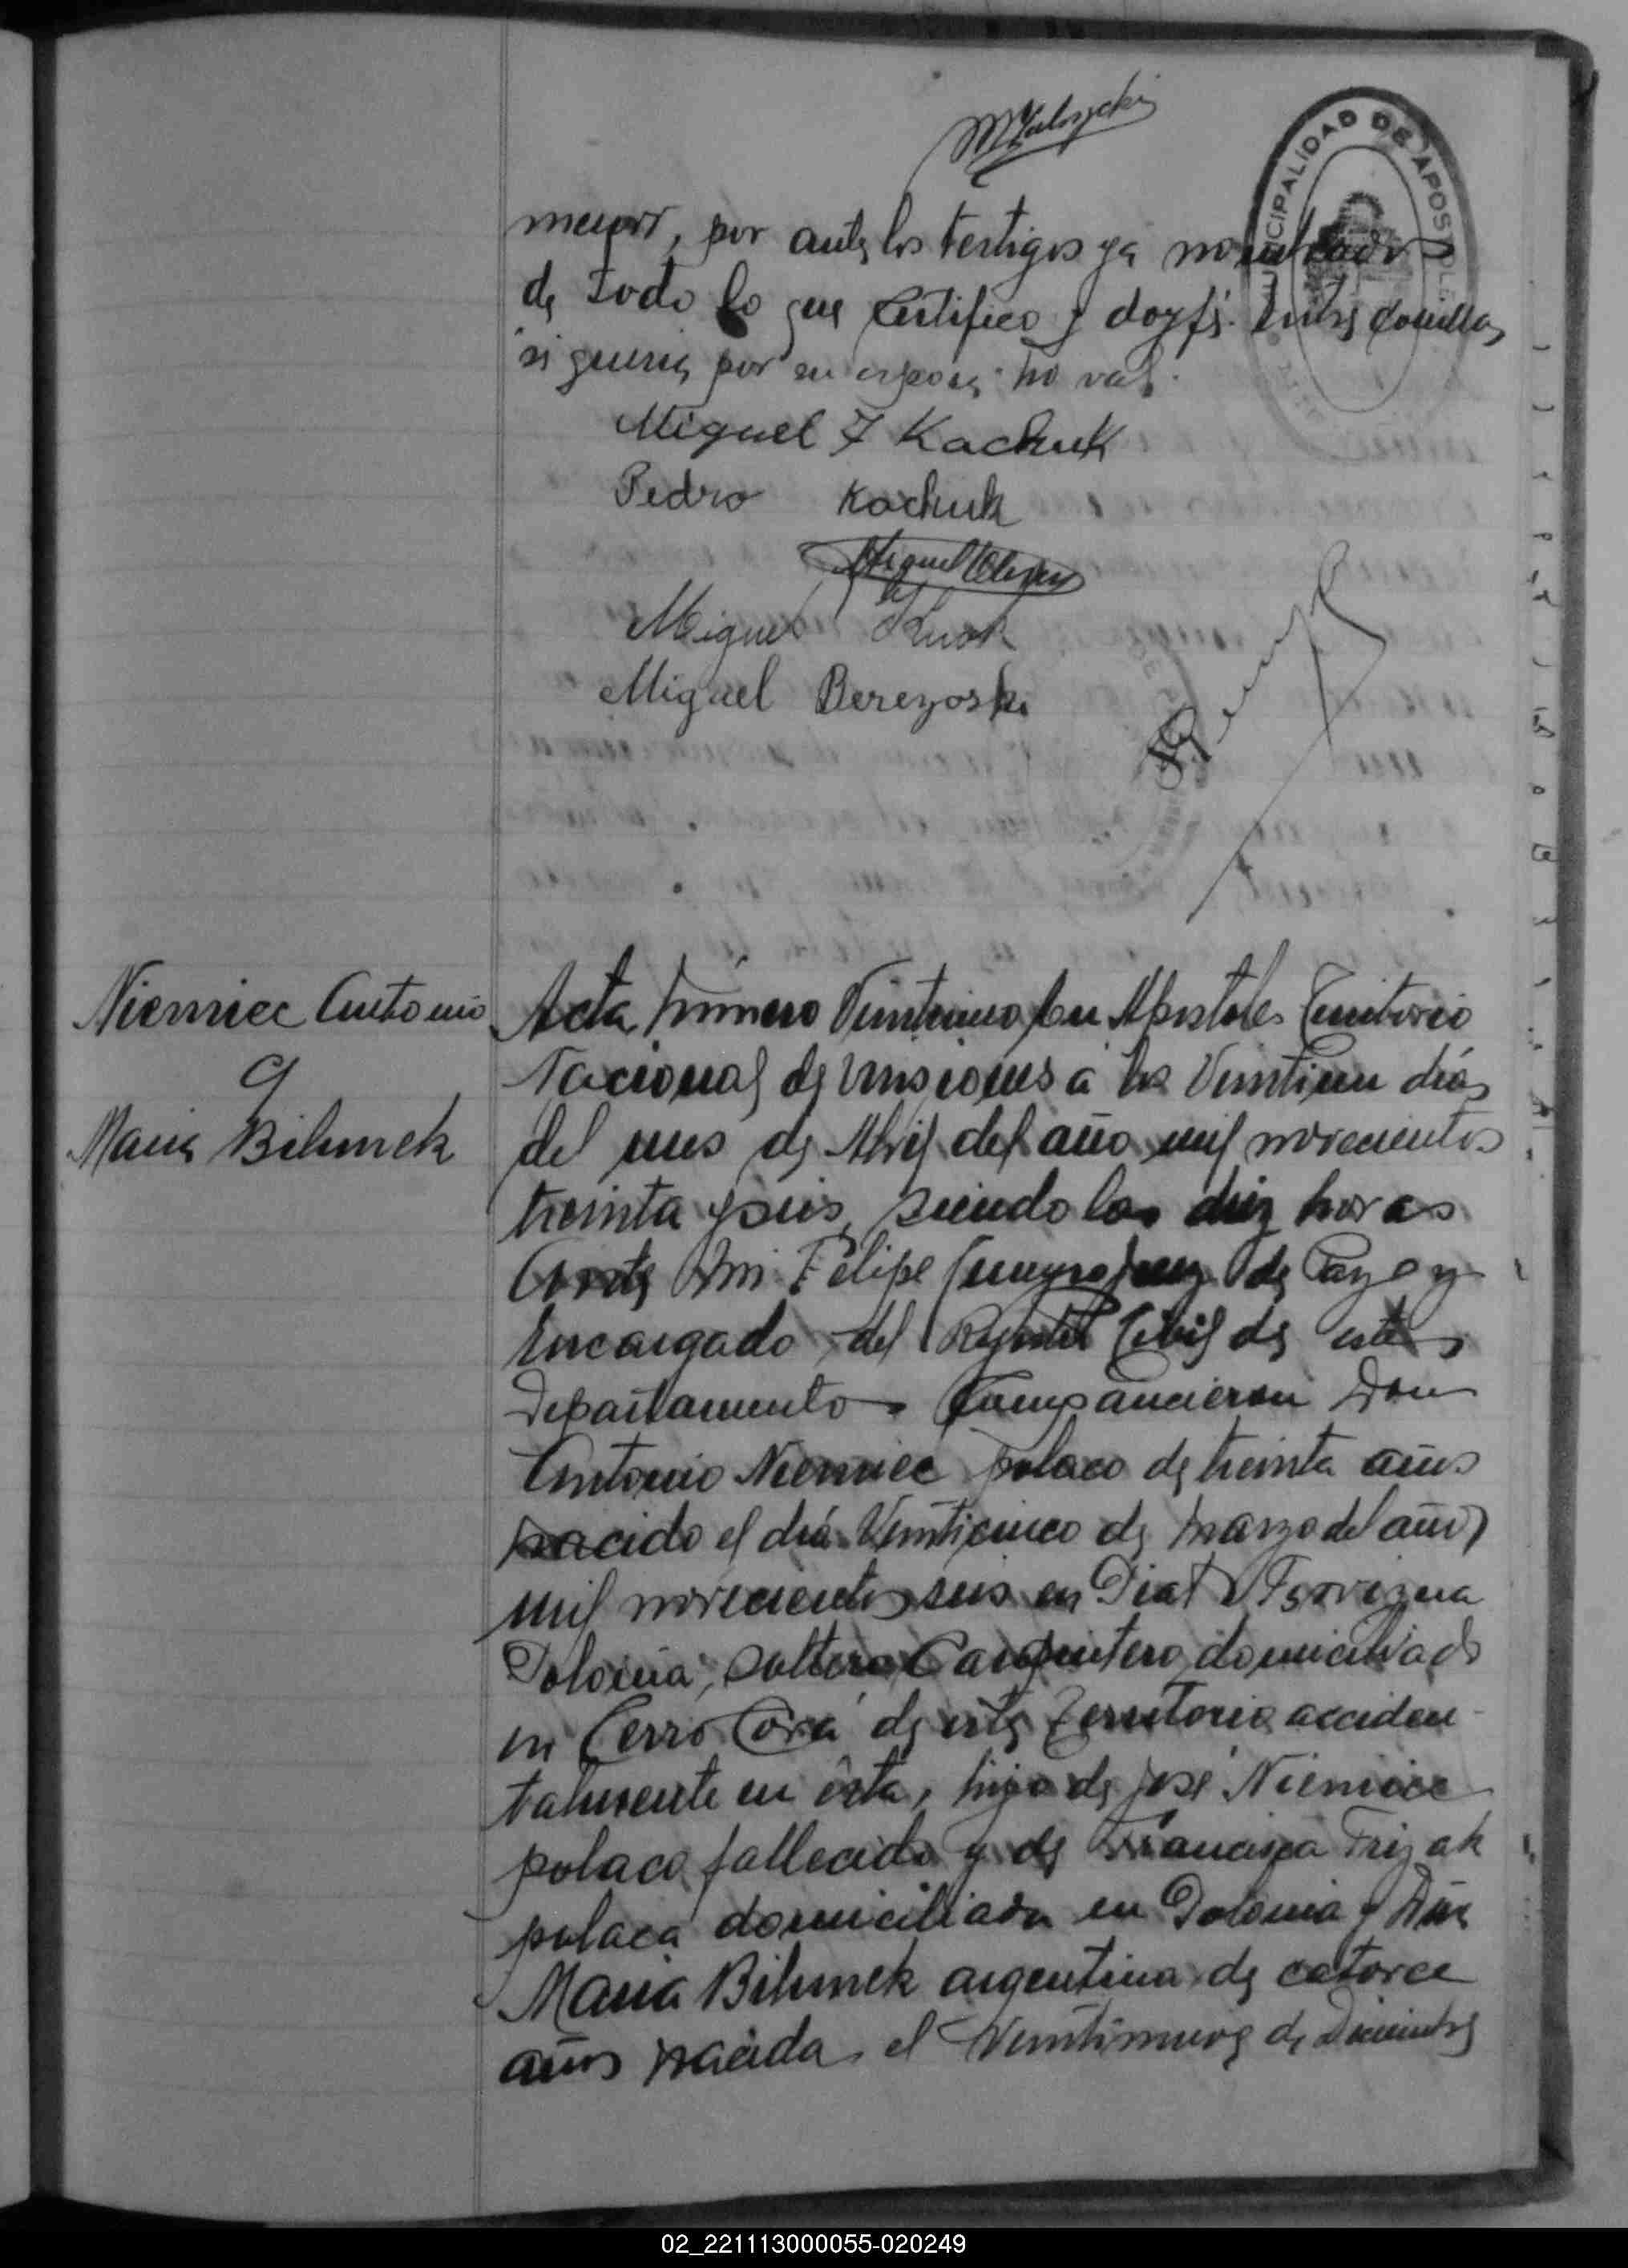 MUNICIPALIDAD DE APOSTOLES
menor, por ante los testigos ya nombrados
de todo lo que certifico y doy fé. Entre comillas
"siguria por su esposa" no vale.
Miguel F Kachuk
Pedro Kachuk
Miguel
Miguel
Miguel Berezoski
Niemiec Antonio
c
Maria Bihmek
Acta número Veinticinco En Apostoles Territorio
Nacional de Misiones a los Veintiun dias
del mes de Abril del año mil novecientos
treinta y seis, siendo las diez horas
Ante Mi Felipe Juez de Paz y
Encargado del Registro Civil de este
Departamento Comparecieron Don
Antonio Niemiec polaco de treinta años
nacido el dia Veinticinco de marzo del año
mil novecientos seis en
Polonia, soltero Carpintero domiciliado
en Cerro Corá de este Territorio acciden-
talmente en ésta, hijo de José Niemiec
polaco fallecido y de Francisca Trizak
polaca domiciliada en Polonia y Dña
Maria Bihmek argentina de catorce
años nacida el Veintinueve de Diciembre
02_221113000055-020249